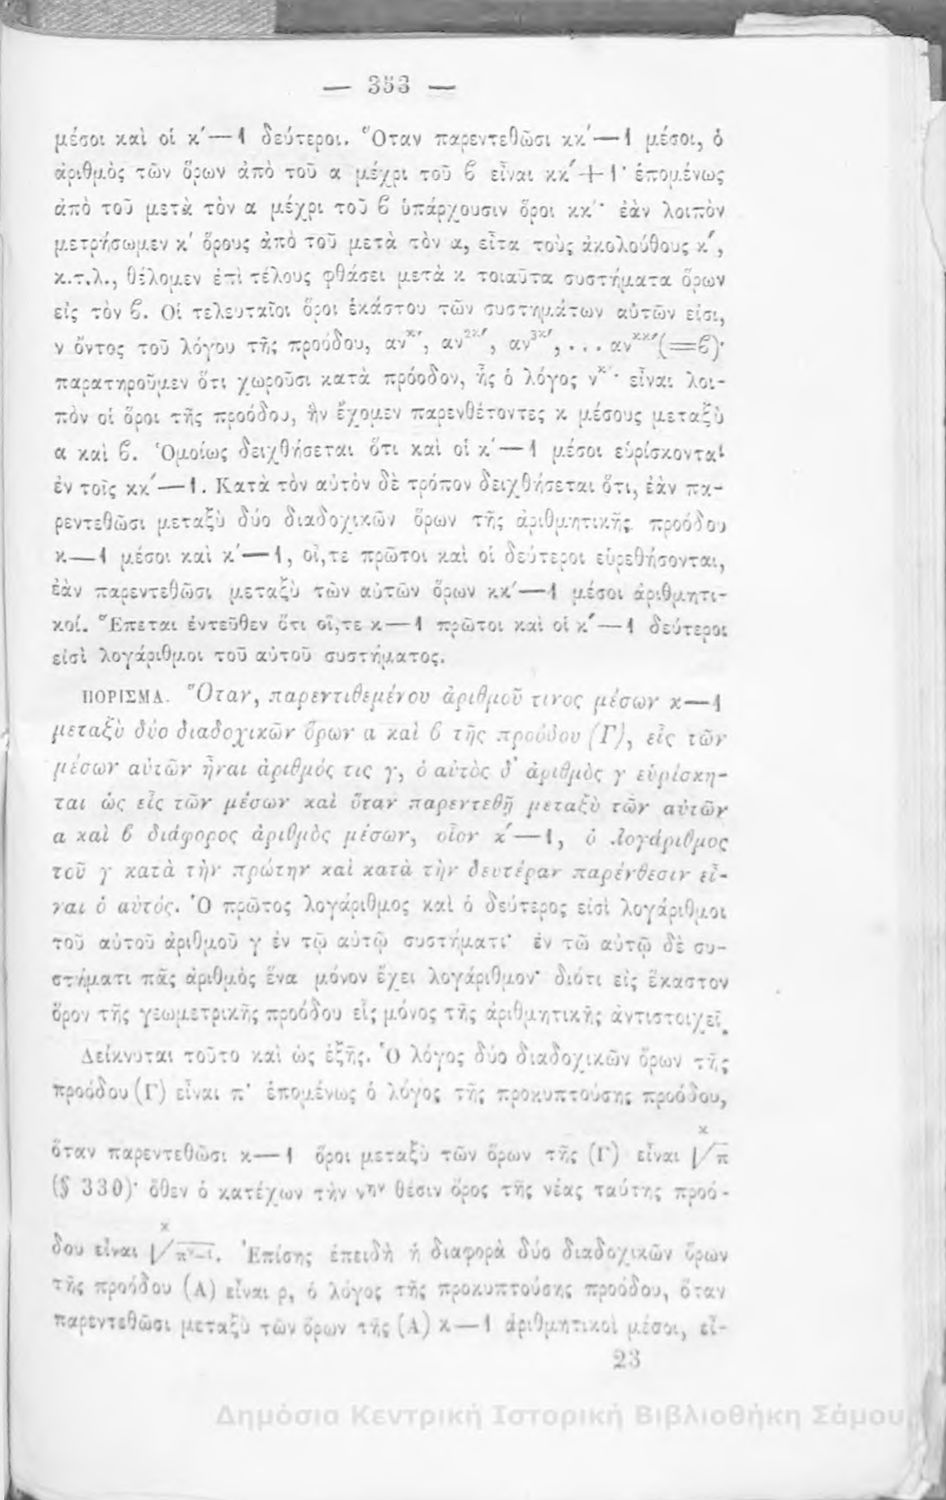 — 353 —
μέσοι καὶ οἱ κ′—1 δεύτεροι. Ὅταν παρεντεθῶσι κκ′—1 μέσοι, ὁ
ἀριθμὸς τῶν ὅρων ἀπὸ τοῦ α μέχρι τοῦ ϐ εἶναι κκ′+1· ἑπομένως
ἀπὸ τοῦ μετὰ τὸν α μέχρι τοῦ ϐ ὑπάρχουσιν ὅροι κκ′· ἐὰν λοιπὸν
μετρήσωμεν κ′ ὅρους ἀπὸ τοῦ μετὰ τὸν α, εἶτα τοὺς ἀκολούθους κ′,
κ.τ.λ., θέλομεν ἐπὶ τέλους φθάσει μετὰ κ τοιαῦτα συστήματα ὅρων
εἰς τὸν ϐ. Οἱ τελευταῖοι ὅροι ἑκάστου τῶν συστημάτων αὐτῶν εἰσι,
ν ὄντος τοῦ λόγου τῆς προόδου, αν^κ′, αν^2κ′, αν^3κ′, ... αν^κκ′(=ϐ)·
παρατηροῦμεν ὅτι χωροῦσι κατὰ πρόοδον, ἧς ὁ λόγος ν^κ′· εἶναι λοι-
πὸν οἱ ὅροι τῆς προόδου, ἣν ἔχομεν παρενθέτοντες κ μέσους μεταξὺ
α καὶ ϐ. Ὁμοίως δειχθήσεται ὅτι καὶ οἱ κ′—1 μέσοι εὑρίσκονται
ἐν τοῖς κκ′—1. Κατὰ τὸν αὐτὸν δὲ τρόπον δειχθήσεται ὅτι, ἐὰν πα-
ρεντεθῶσι μεταξὺ δύο διαδοχικῶν ὅρων τῆς ἀριθμητικῆς προόδου
κ—1 μέσοι καὶ κ′—1, οἵ,τε πρῶτοι καὶ οἱ δεύτεροι εὑρεθήσονται,
ἐὰν παρεντεθῶσι μεταξὺ τῶν αὐτῶν ὅρων κκ′—1 μέσοι ἀριθμητι-
κοί. Ἕπεται ἐντεῦθεν ὅτι οἵ,τε κ—1 πρῶτοι καὶ οἱ κ′—1 δεύτεροι
εἰσὶ λογάριθμοι τοῦ αὐτοῦ συστήματος.
ΠΟΡΙΣΜΑ. Ὅταν, παρεντιθεμένου ἀριθμοῦ τινος μέσων κ—1
μεταξὺ δύο διαδοχικῶν ὅρων α καὶ ϐ τῆς προόδου (Γ), εἷς τῶν
μέσων αὐτῶν ἦναι ἀριθμός τις γ, ὁ αὐτὸς δ' ἀριθμὸς γ εὑρίσκη-
ται ὡς εἷς τῶν μέσων καὶ ὅταν παρεντεθῇ μεταξὺ τῶν αὐτῶν
α καὶ ϐ διάφορος ἀριθμὸς μέσων, οἷον κ′—1, ὁ λογάριθμος
τοῦ γ κατὰ τὴν πρώτην καὶ κατὰ τὴν δευτέραν παρένθεσιν εἶ-
ναι ὁ αὐτός. Ὁ πρῶτος λογάριθμος καὶ ὁ δεύτερος εἰσὶ λογάριθμοι
τοῦ αὐτοῦ ἀριθμοῦ γ ἐν τῷ αὐτῷ συστήματι· ἐν τῷ αὐτῷ δὲ συ-
στήματι πᾶς ἀριθμὸς ἕνα μόνον ἔχει λογάριθμον· διότι εἰς ἕκαστον
ὅρον τῆς γεωμετρικῆς προόδου εἷς μόνος τῆς ἀριθμητικῆς ἀντιστοιχεῖ.
Δείκνυται τοῦτο καὶ ὡς ἑξῆς. Ὁ λόγος δύο διαδοχικῶν ὅρων τῆς
προόδου (Γ) εἶναι π· ἑπομένως ὁ λόγος τῆς προκυπτούσης προόδου,
ὅταν παρεντεθῶσι κ—1 ὅροι μεταξὺ τῶν ὅρων τῆς (Γ) εἶναι ^κ√π
(§ 330)· ὅθεν ὁ κατέχων τὴν ν^ην θέσιν ὅρος τῆς νέας ταύτης προό-
δου εἶναι ^κ√π^ν-1. Ἐπίσης ἐπειδὴ ἡ διαφορὰ δύο διαδοχικῶν ὅρων
τῆς προόδου (Α) εἶναι ρ, ὁ λόγος τῆς προκυπτούσης προόδου, ὅταν
παρεντεθῶσι μεταξὺ τῶν ὅρων τῆς (Α) κ—1 ἀριθμητικοὶ μέσοι, εἶ-
23
Δημόσια Κεντρική Ιστορική Βιβλιοθήκη Σάμου